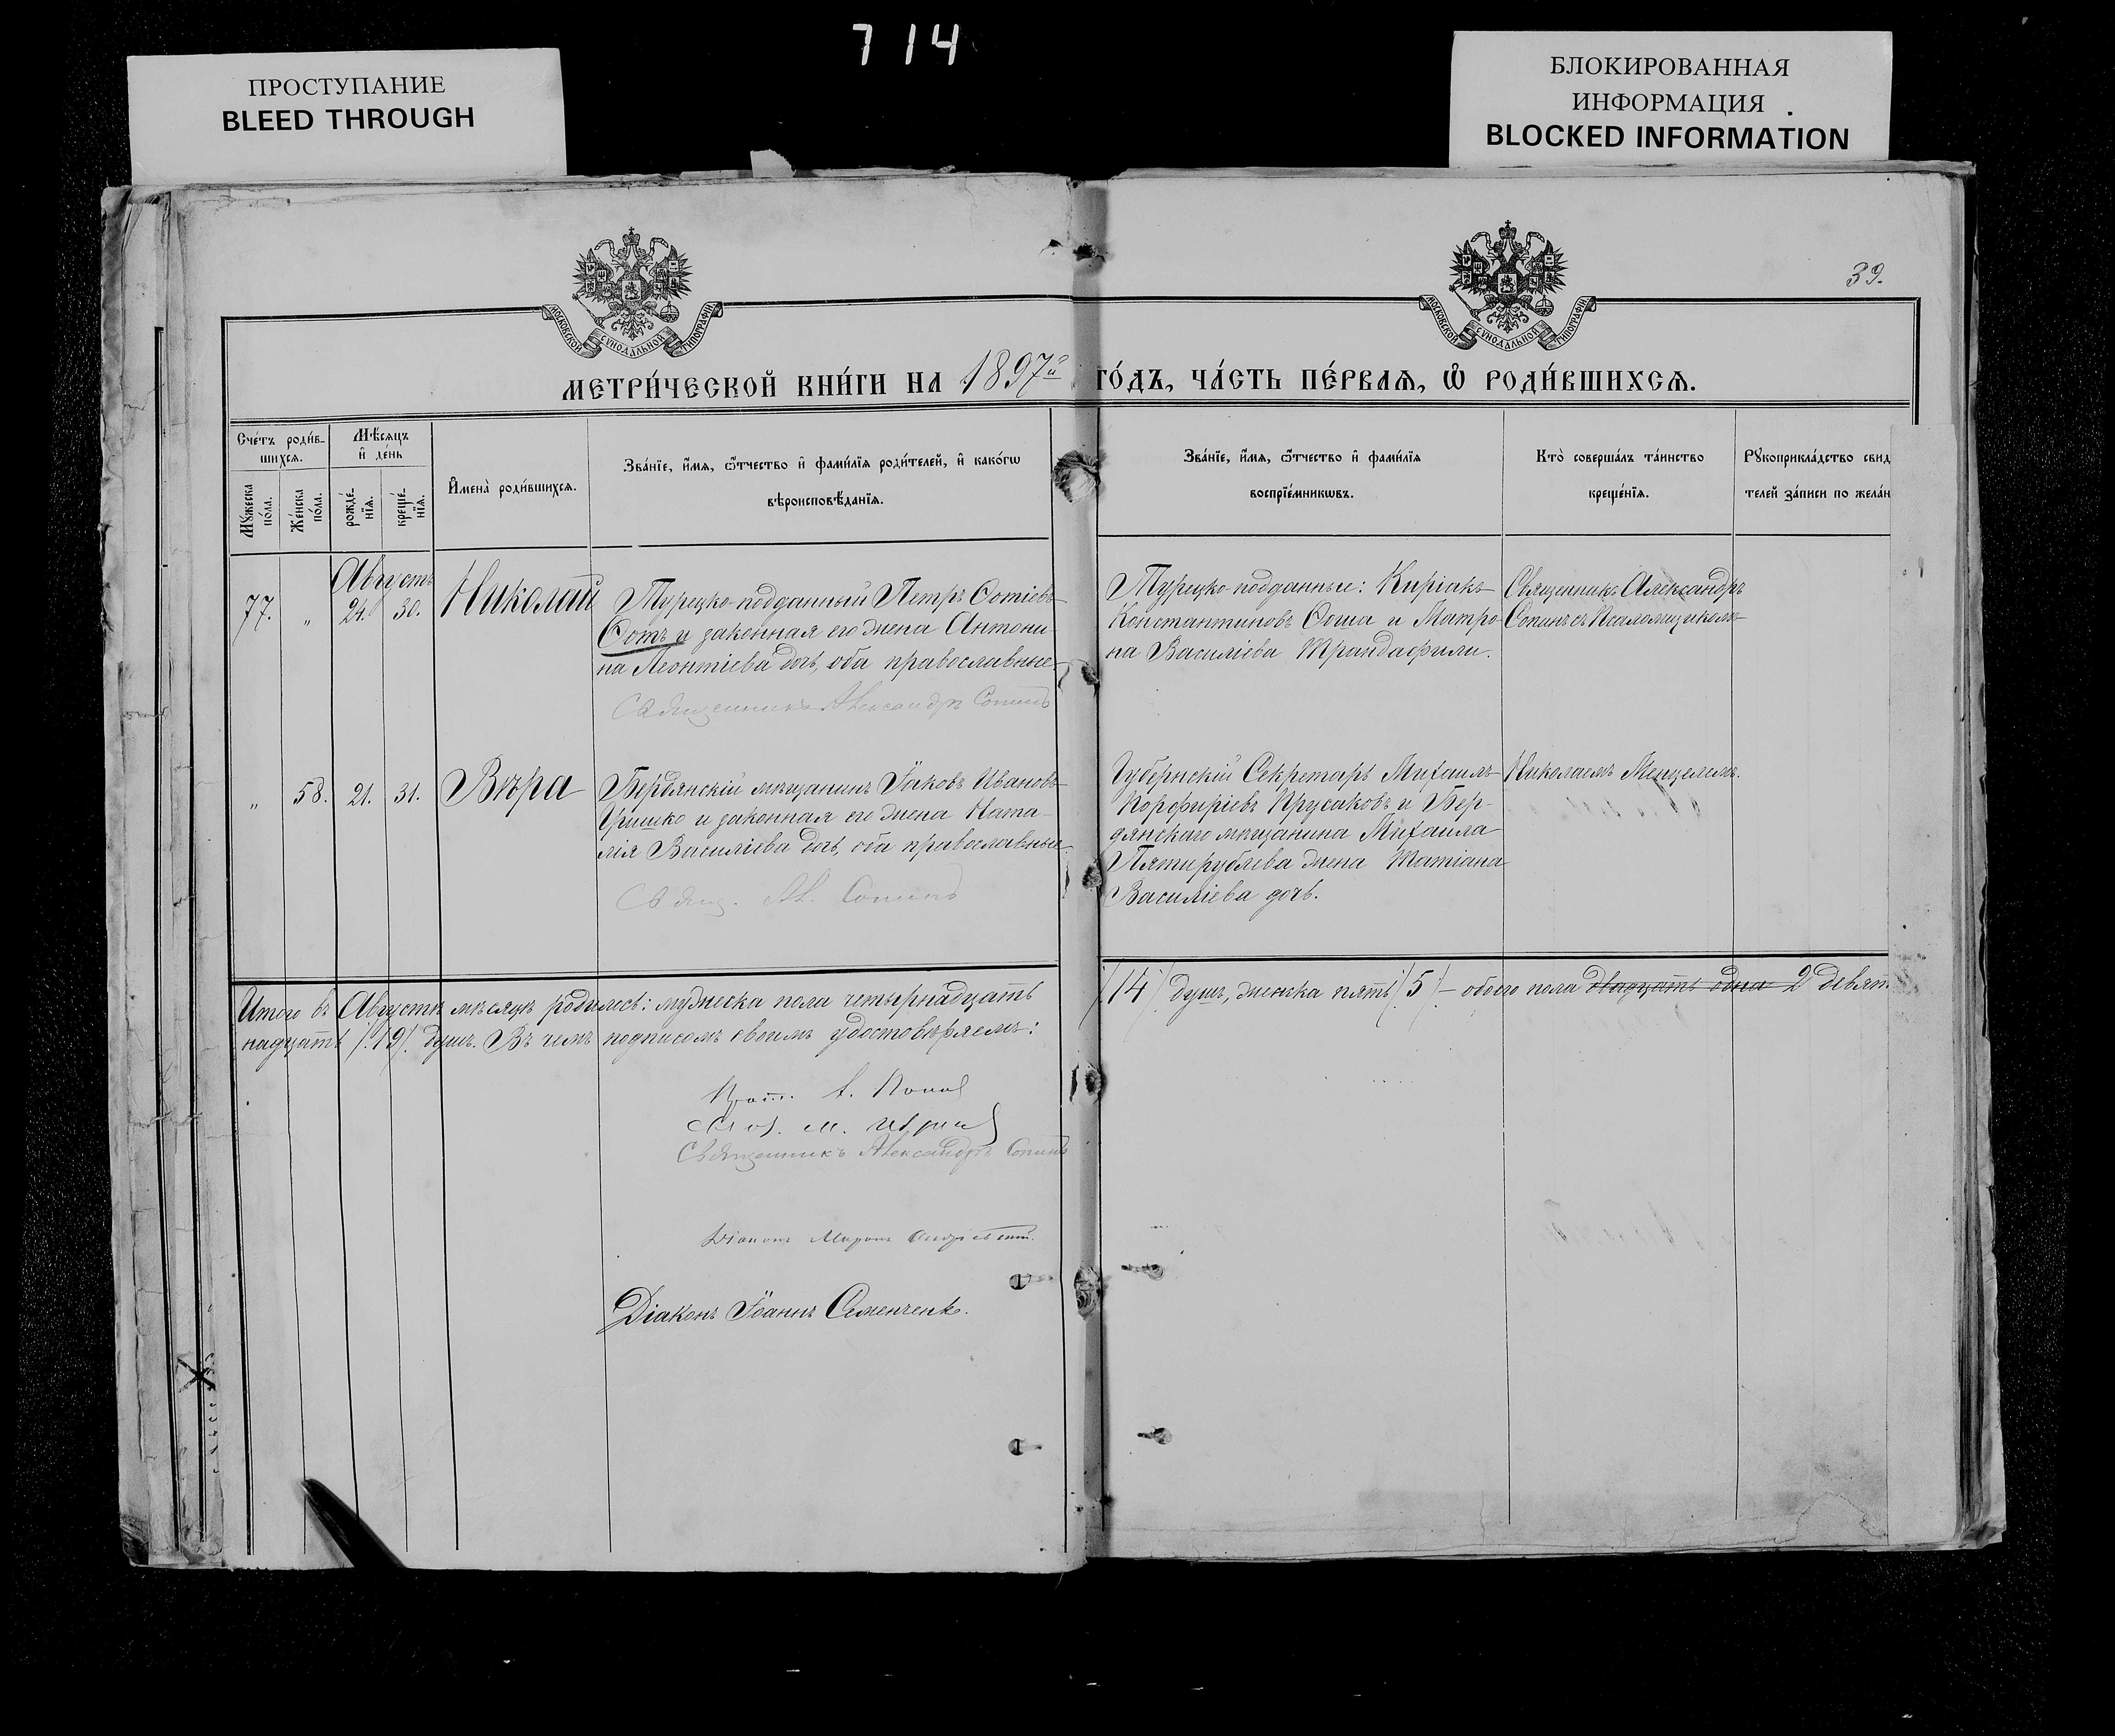 714
ПРОСТУПАНИЕ
BLEED THROUGH
БЛОКИРОВАННАЯ
ИНФОРМАЦИЯ
BLOCKED INFORMATION
39.
МОСКОВСКОЙ СѴНОДАЛЬНОЙ ТИПОГРАФІИ
МОСКОВСКОЙ СѴНОДАЛЬНОЙ ТИПОГРАФІИ
МЕТРИ́ЧЕСКОЙ КНИ́ГИ НА 1897й ГО́ДЪ, ЧА́СТЬ ПЕ́РВАѦ, Ѽ РОДИ́ВШИХСѦ.
Сче́тъ роди́в-
шихсѧ.
Мѣ́сѧцъ
и҆ де́нь
Мꙋ́жеска
по́ла.
Же́нска
по́ла.
рожде́-
нїѧ.
креще́-
нїѧ.
И҆мена̀ роди́вшихсѧ.
Зва́нїе, и҆́мѧ, ѻ҆́тчество и҆ фами́лїѧ роди́телей, и҆ како́гѡ
вѣроисповѣ́данїѧ.
Зва́нїе, и҆́мѧ, ѻ҆́тчество и҆ фами́лїѧ
воспрїе́мникѡвъ.
Кто̀ соверша́лъ та́инство
креще́нїѧ.
Рꙋкоприкла́дство свид
телей за́писи по жела́н
Августъ
77. „ 21. 30. Николай
Турецко-подданный Петръ Сотіевъ
Сотъ и законная его жена Антони-
на Леонтіева дочь, оба православные.
Священникъ Александръ Сопинъ
Турецко-подданные: Киріакъ
Константиновъ Фоша и Матро-
на Василіева Трандафили.
Священникъ Александръ
Сопинъ съ Псаломщикомъ
„ 58. 21. 31. Вѣра
Бердянскій мѣщанинъ Іаковъ Ивановъ
Гришко и законная его жена Ната-
лія Василіева дочь, оба православные.
Свящ. Ал. Сопинъ
Губернскій Секретарь Михаилъ
Порфиріевъ Прусаковъ и Бер-
дянскаго мѣщанина Михаила
Пятирублева жена Татіана
Василіева дочь.
Николаемъ Менцелемъ.
Итого въ Августѣ мѣсяцѣ родилось: мужеска пола четырнадцать /14/ душъ, женска пять /5/ – обоего пола двадцать одна 2 девят
надцать /19/ душъ. Въ чемъ подписомъ своимъ удостовѣряемъ:
Прот. Попов
Священникъ Александръ Сопинъ
Діаконъ
Діаконъ Іоаннъ Семенченко.